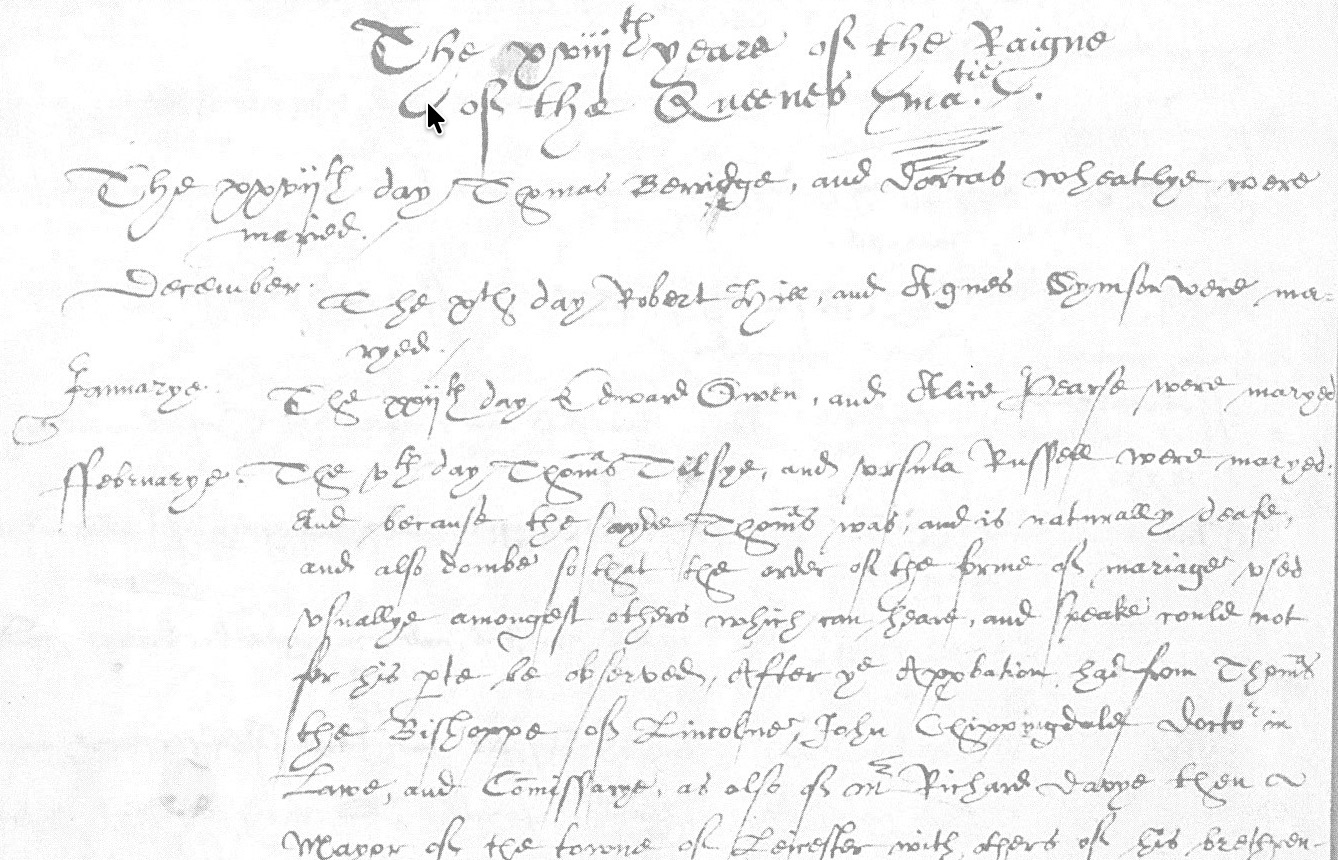 The xviiith yeare of the Raigne
of the Queenes ma.tie
The xxviith day Thomas Berridge, and Dorcas wheatlye were
maried.
December. The xth day Robert Hill, and Agnes Symson were ma=
ryed.
Januarye. The xxiith day Edward Owen, and Alice Pearse were maryed
ffebruarye. The vth day Thom̄s Tilsye, and vrsula Russell were maryed.
And because the sayde Thom̄s was, and is naturally deafe,
and also dombe so that the order of the forme of mariage vsed
vsuallye amongest others which can heare, and speake could not
for his pte be observed, After ye Appbation had from Thom̄s
the Bishoppe of Lincolne, John Chippingdale doctor in
Lawe, and Com̄issarye, as also of mr Richard Davye then
Mayor of the towne of Leicester with others of his brethren